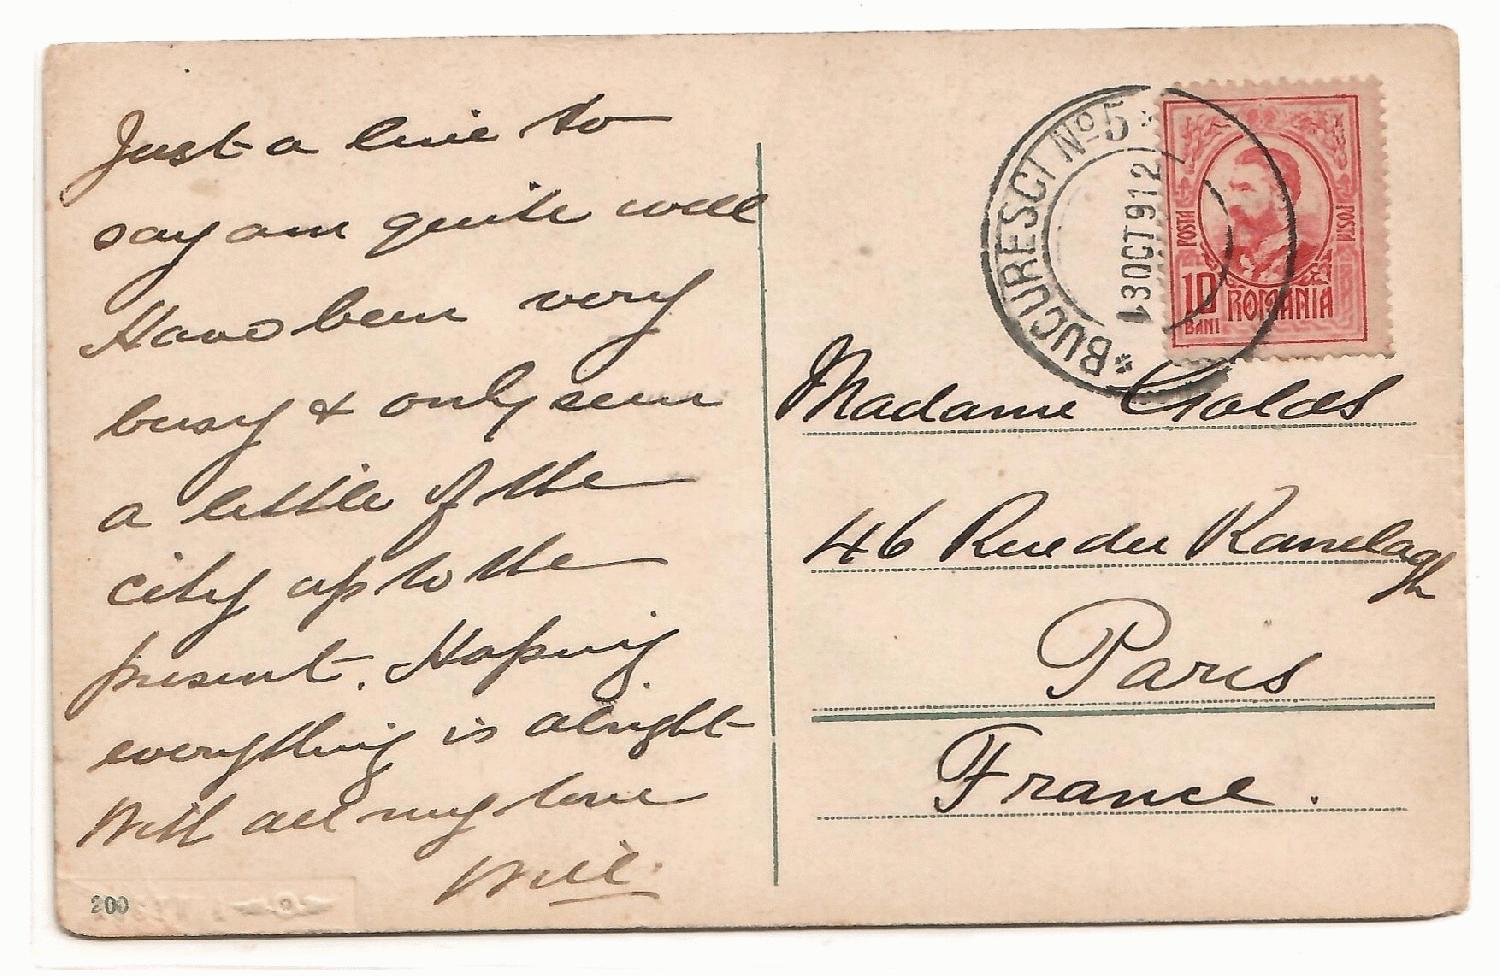 Just a line to
say am quite well
Have been very
busy & only seen
a little of the
city up to the
present. Hoping
everything is alright
With all my love
Will.
200
* BUCURESCI No 5 *
13OCT912
POSTA
POSTA
10
BANI
ROMANIA
Madame Golds
46 Rue du Ranelagh
Paris
France.